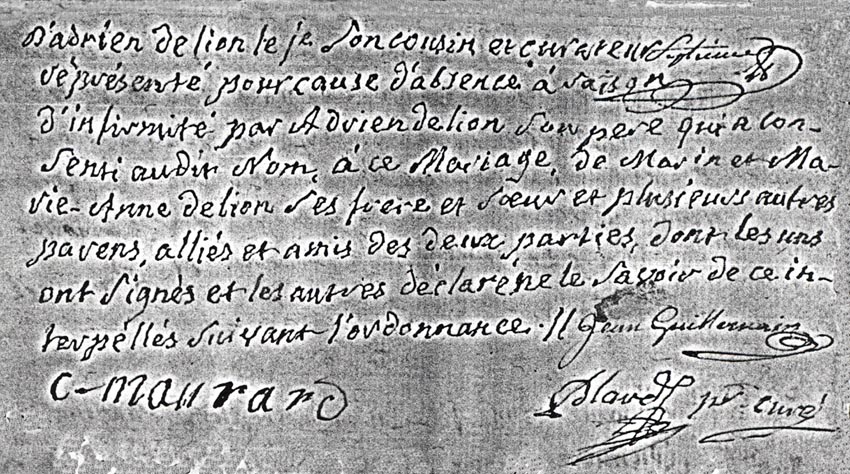 D'adrien delion le je son cousin et curateur
représenté pour cause d'absence à raison
d'infirmité par Adrien delion son pere qui a con-
senti audit Nom, à ce Mariage, de Marin et Ma-
rie-Anne delion ses frere et sœur et plusieurs autres
parens, alliés et amis des deux parties, dont les uns
ont signés et les autres déclaré ne le savoir de ce in-
terpéllés suivant l'ordonnance. // Jean Guillermain
C-maurard
pr curé